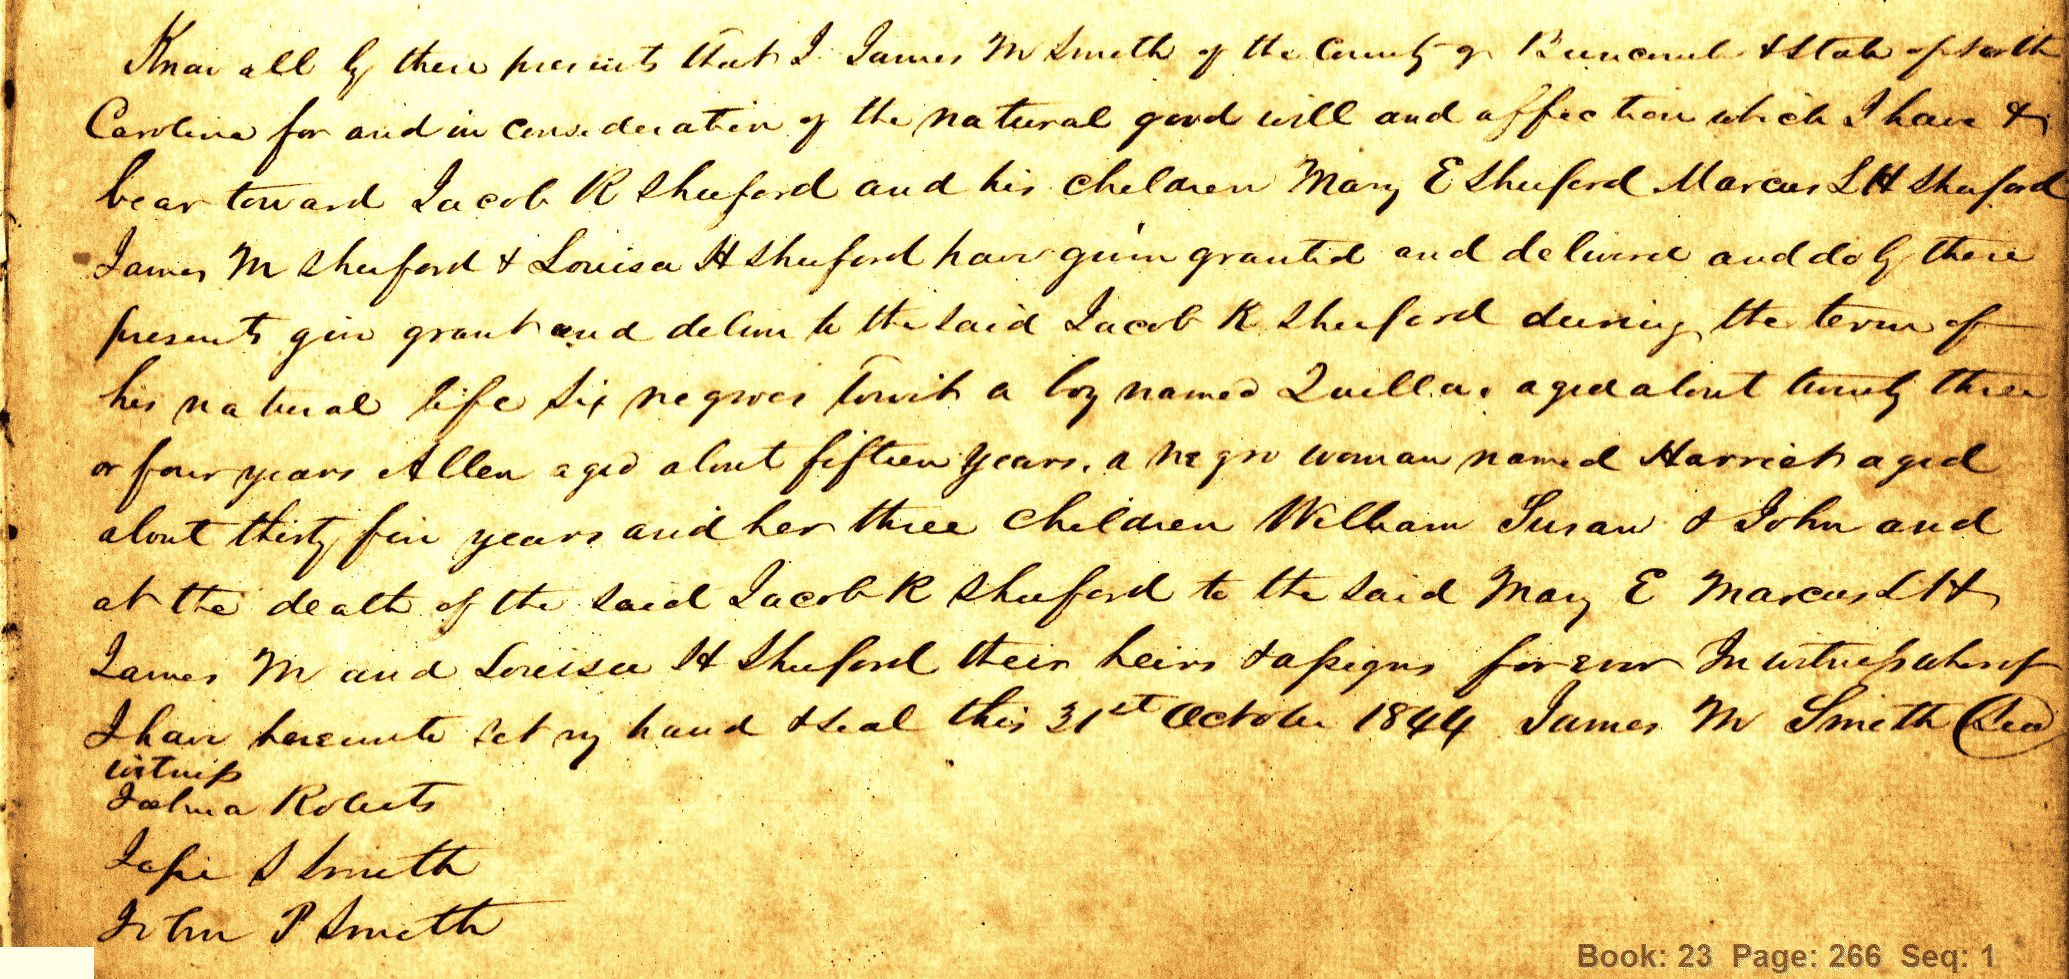 Know all by these presents that I James M Smith of the County of Buncombe & State of North
Carolina for and in consideration of the natural good will and affection which I have &
bear toward Jacob R Shuford and his children Mary E Shuford Marcus L H Shuford
James M Shuford & Louisa H Shuford have given granted and delivered and do by these
presents give grant and deliver to the said Jacob R Shuford during the term of
his natural life six negroes towit a boy named Quilla, aged about twenty three
or four years Allen aged about fifteen years, a negro woman named Harriet aged
about thirty five years and her three children William Susan & John and
at the death of the said Jacob R Shuford to the said Mary E Marcus L H
James M and Louisa H Shuford their heirs & assigns forever In witness whereof
I have hereunto set my hand & seal this 31st October 1844 James M Smith (Seal)
witness
Joshua Roberts
Jesse S Smith
John P Smith
Book: 23 Page: 266 Seq: 1